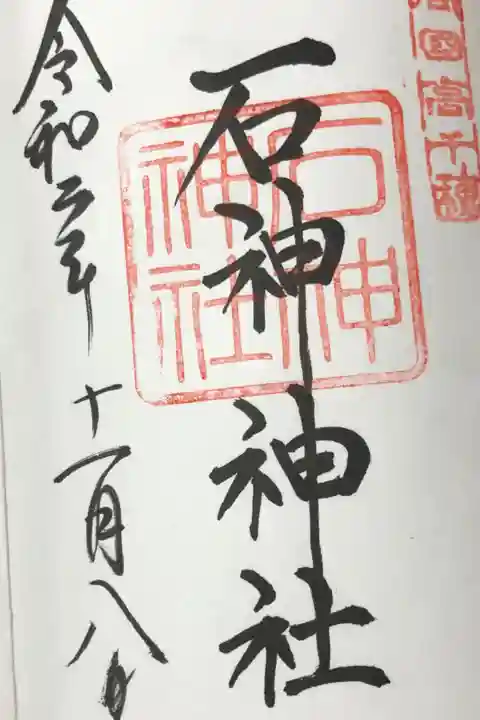 國高千穂
石神神社
石神神社
令和二年十一月八日